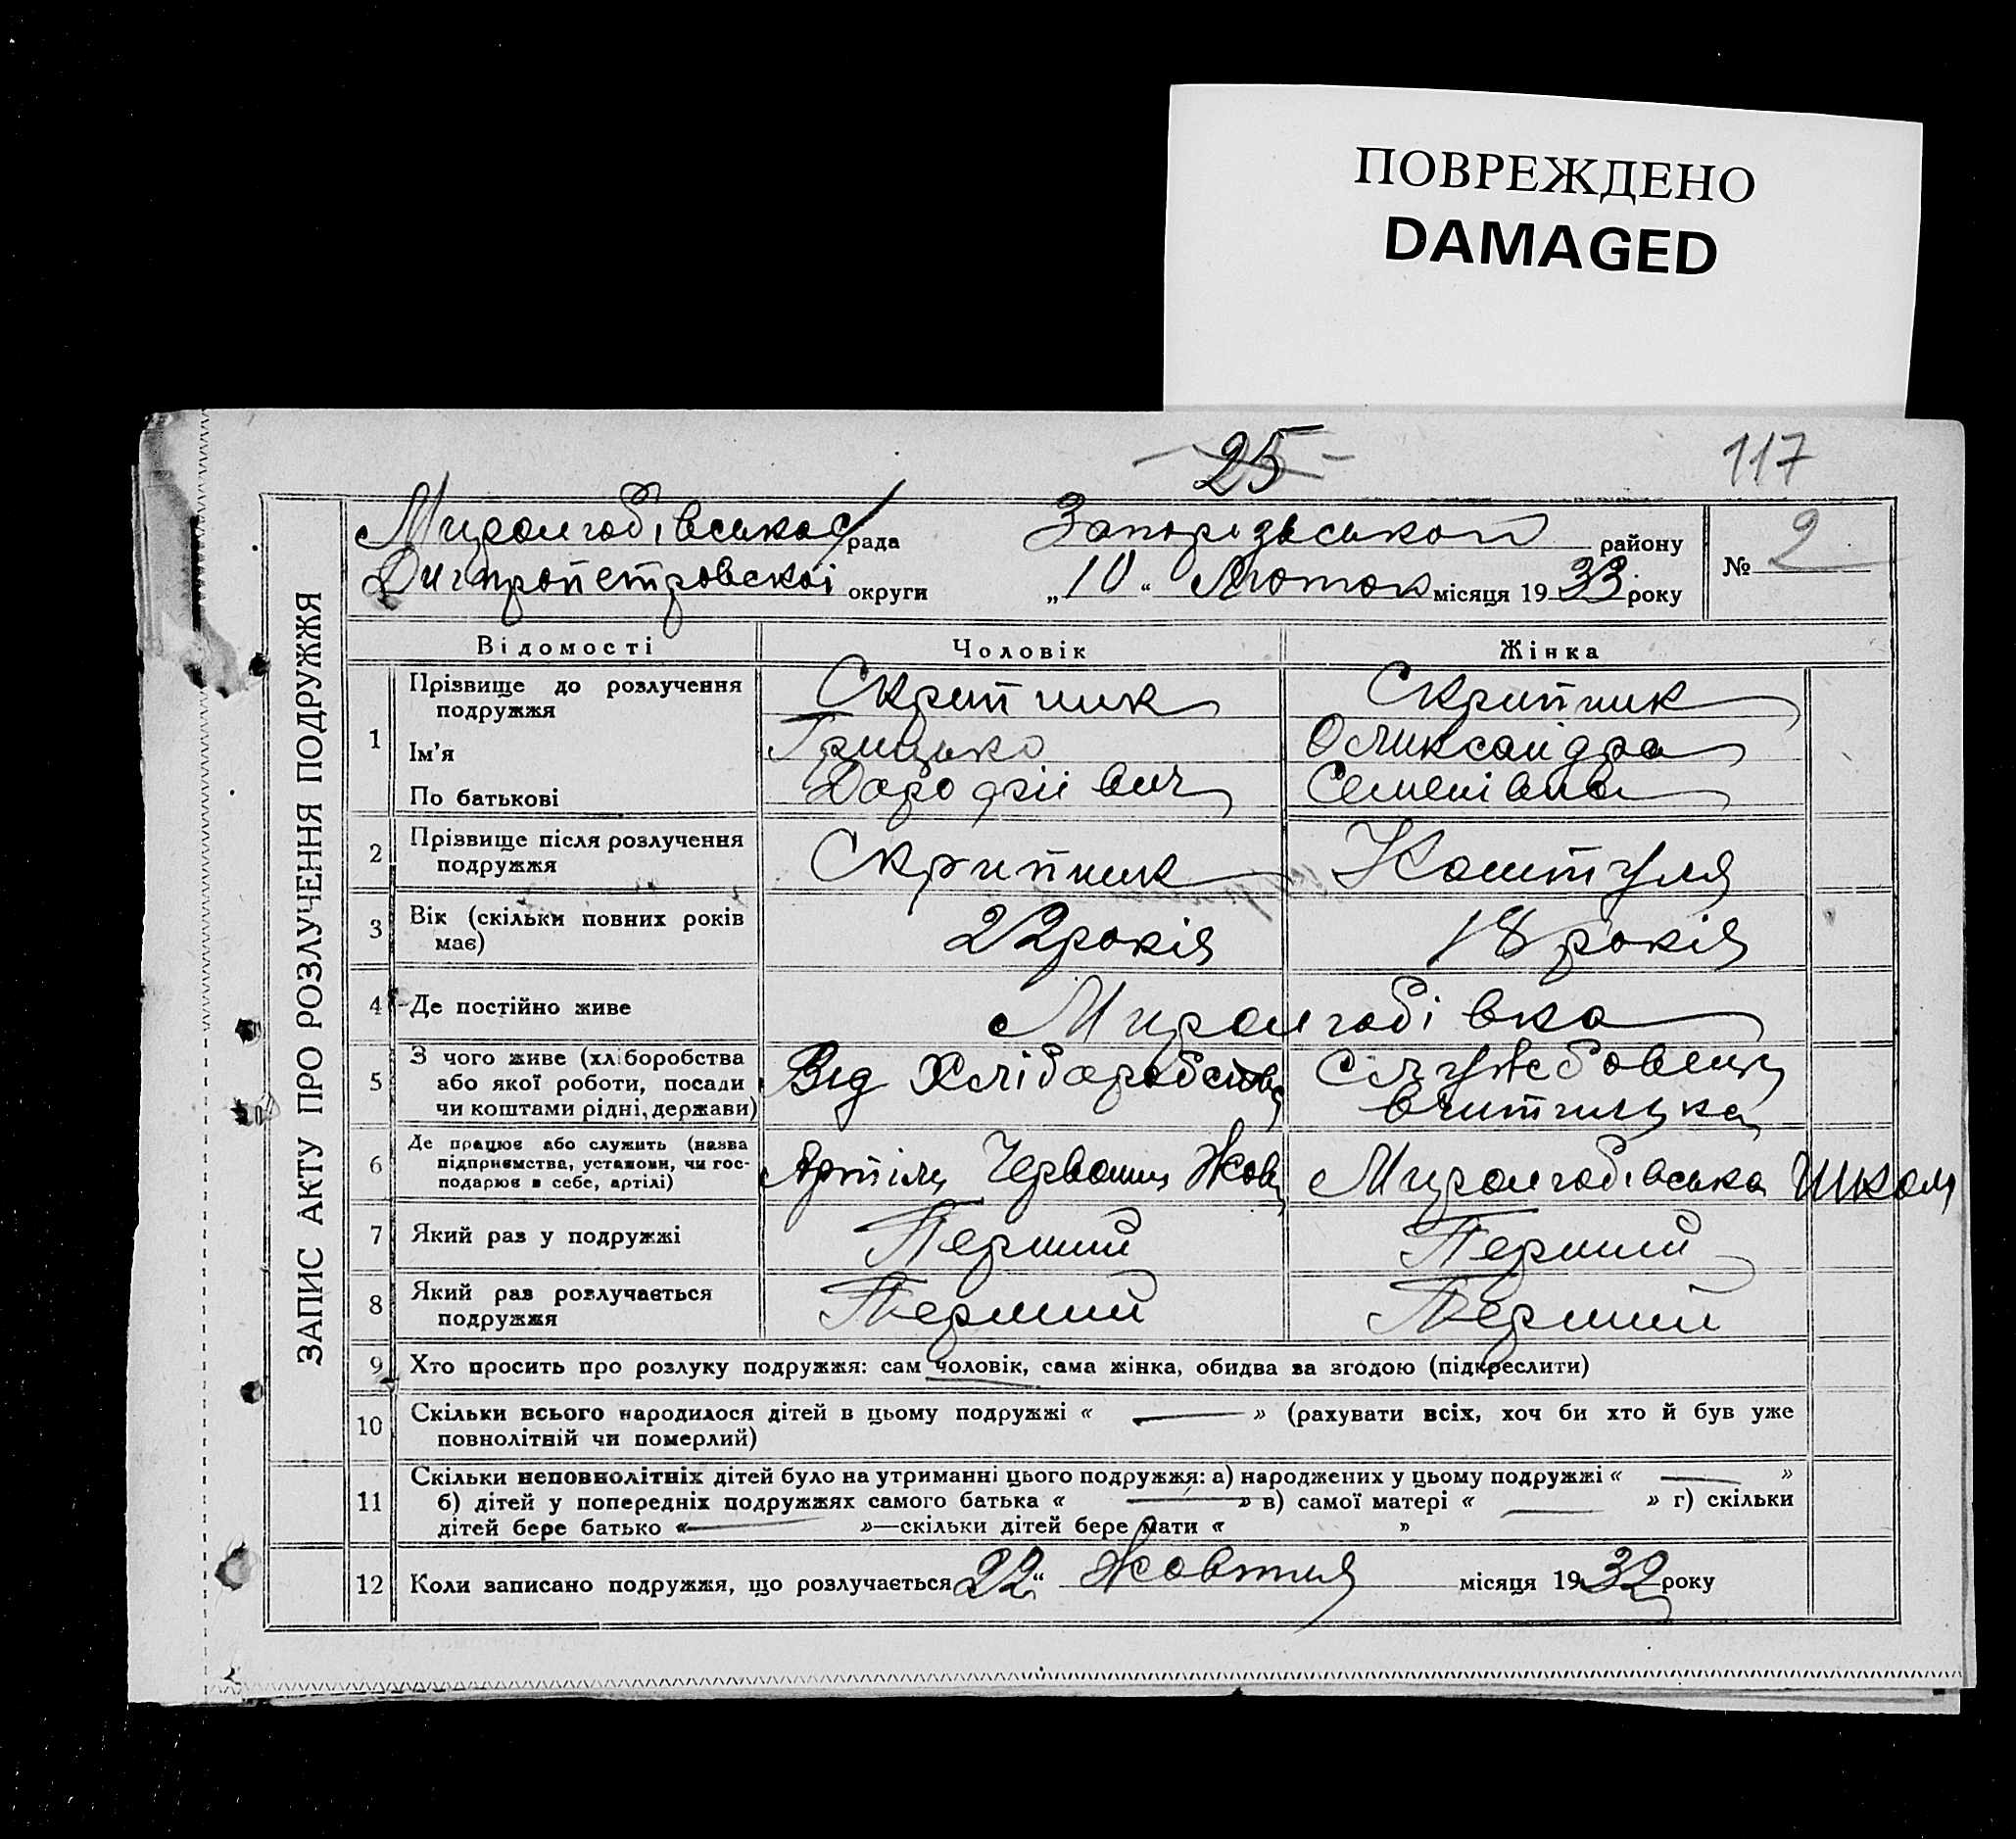 ПОВРЕЖДЕНО
DAMAGED
25
117
рада
Запорізьської району
Дніпропетровскої округи
"10" місяця 1933 року
№ 2
ЗАПИС АКТУ ПРО РОЗЛУЧЕННЯ ПОДРУЖЖЯ
Відомості Чоловік Жінка
1 Прізвище до розлучення подружжя Скрипник Скрипник
Ім'я Грицько Оликсандра
По батькові Дорофіівич Семенівна
2 Прізвище після розлучення подружжя Скрипник Коштуля
3 Вік (скільки повних років має) 22 років 18 років
4 Де постійно живе
5 З чого живе (хліборобства або якої роботи, посади чи коштами рідні, держави) Від Хліборобства Служебовець вчителька
6 Де працює або служить (назва підприємства, установи, чи господарює в себе, артілі) Артіль Червоний Жов
7 Який раз у подружжі Перший Перший
8 Який раз розлучається подружжя Перший Перший
9 Хто просить про розлуку подружжя: сам чоловік, сама жінка, обидва за згодою (підкреслити)
10 Скільки всього народилося дітей в цьому подружжі « — » (рахувати всіх, хоч би хто й був уже
повнолітній чи померлий)
11 Скільки неповнолітніх дітей було на утриманні цього подружжя: а) народжених у цьому подружжі « — »
б) дітей у попередніх подружжях самого батька « — » в) самої матері « — » г) скільки
дітей бере батько « — »—скільки дітей бере мати « »
12 Коли записано подружжя, що розлучається 22 " Жовтня місяця 1932 року